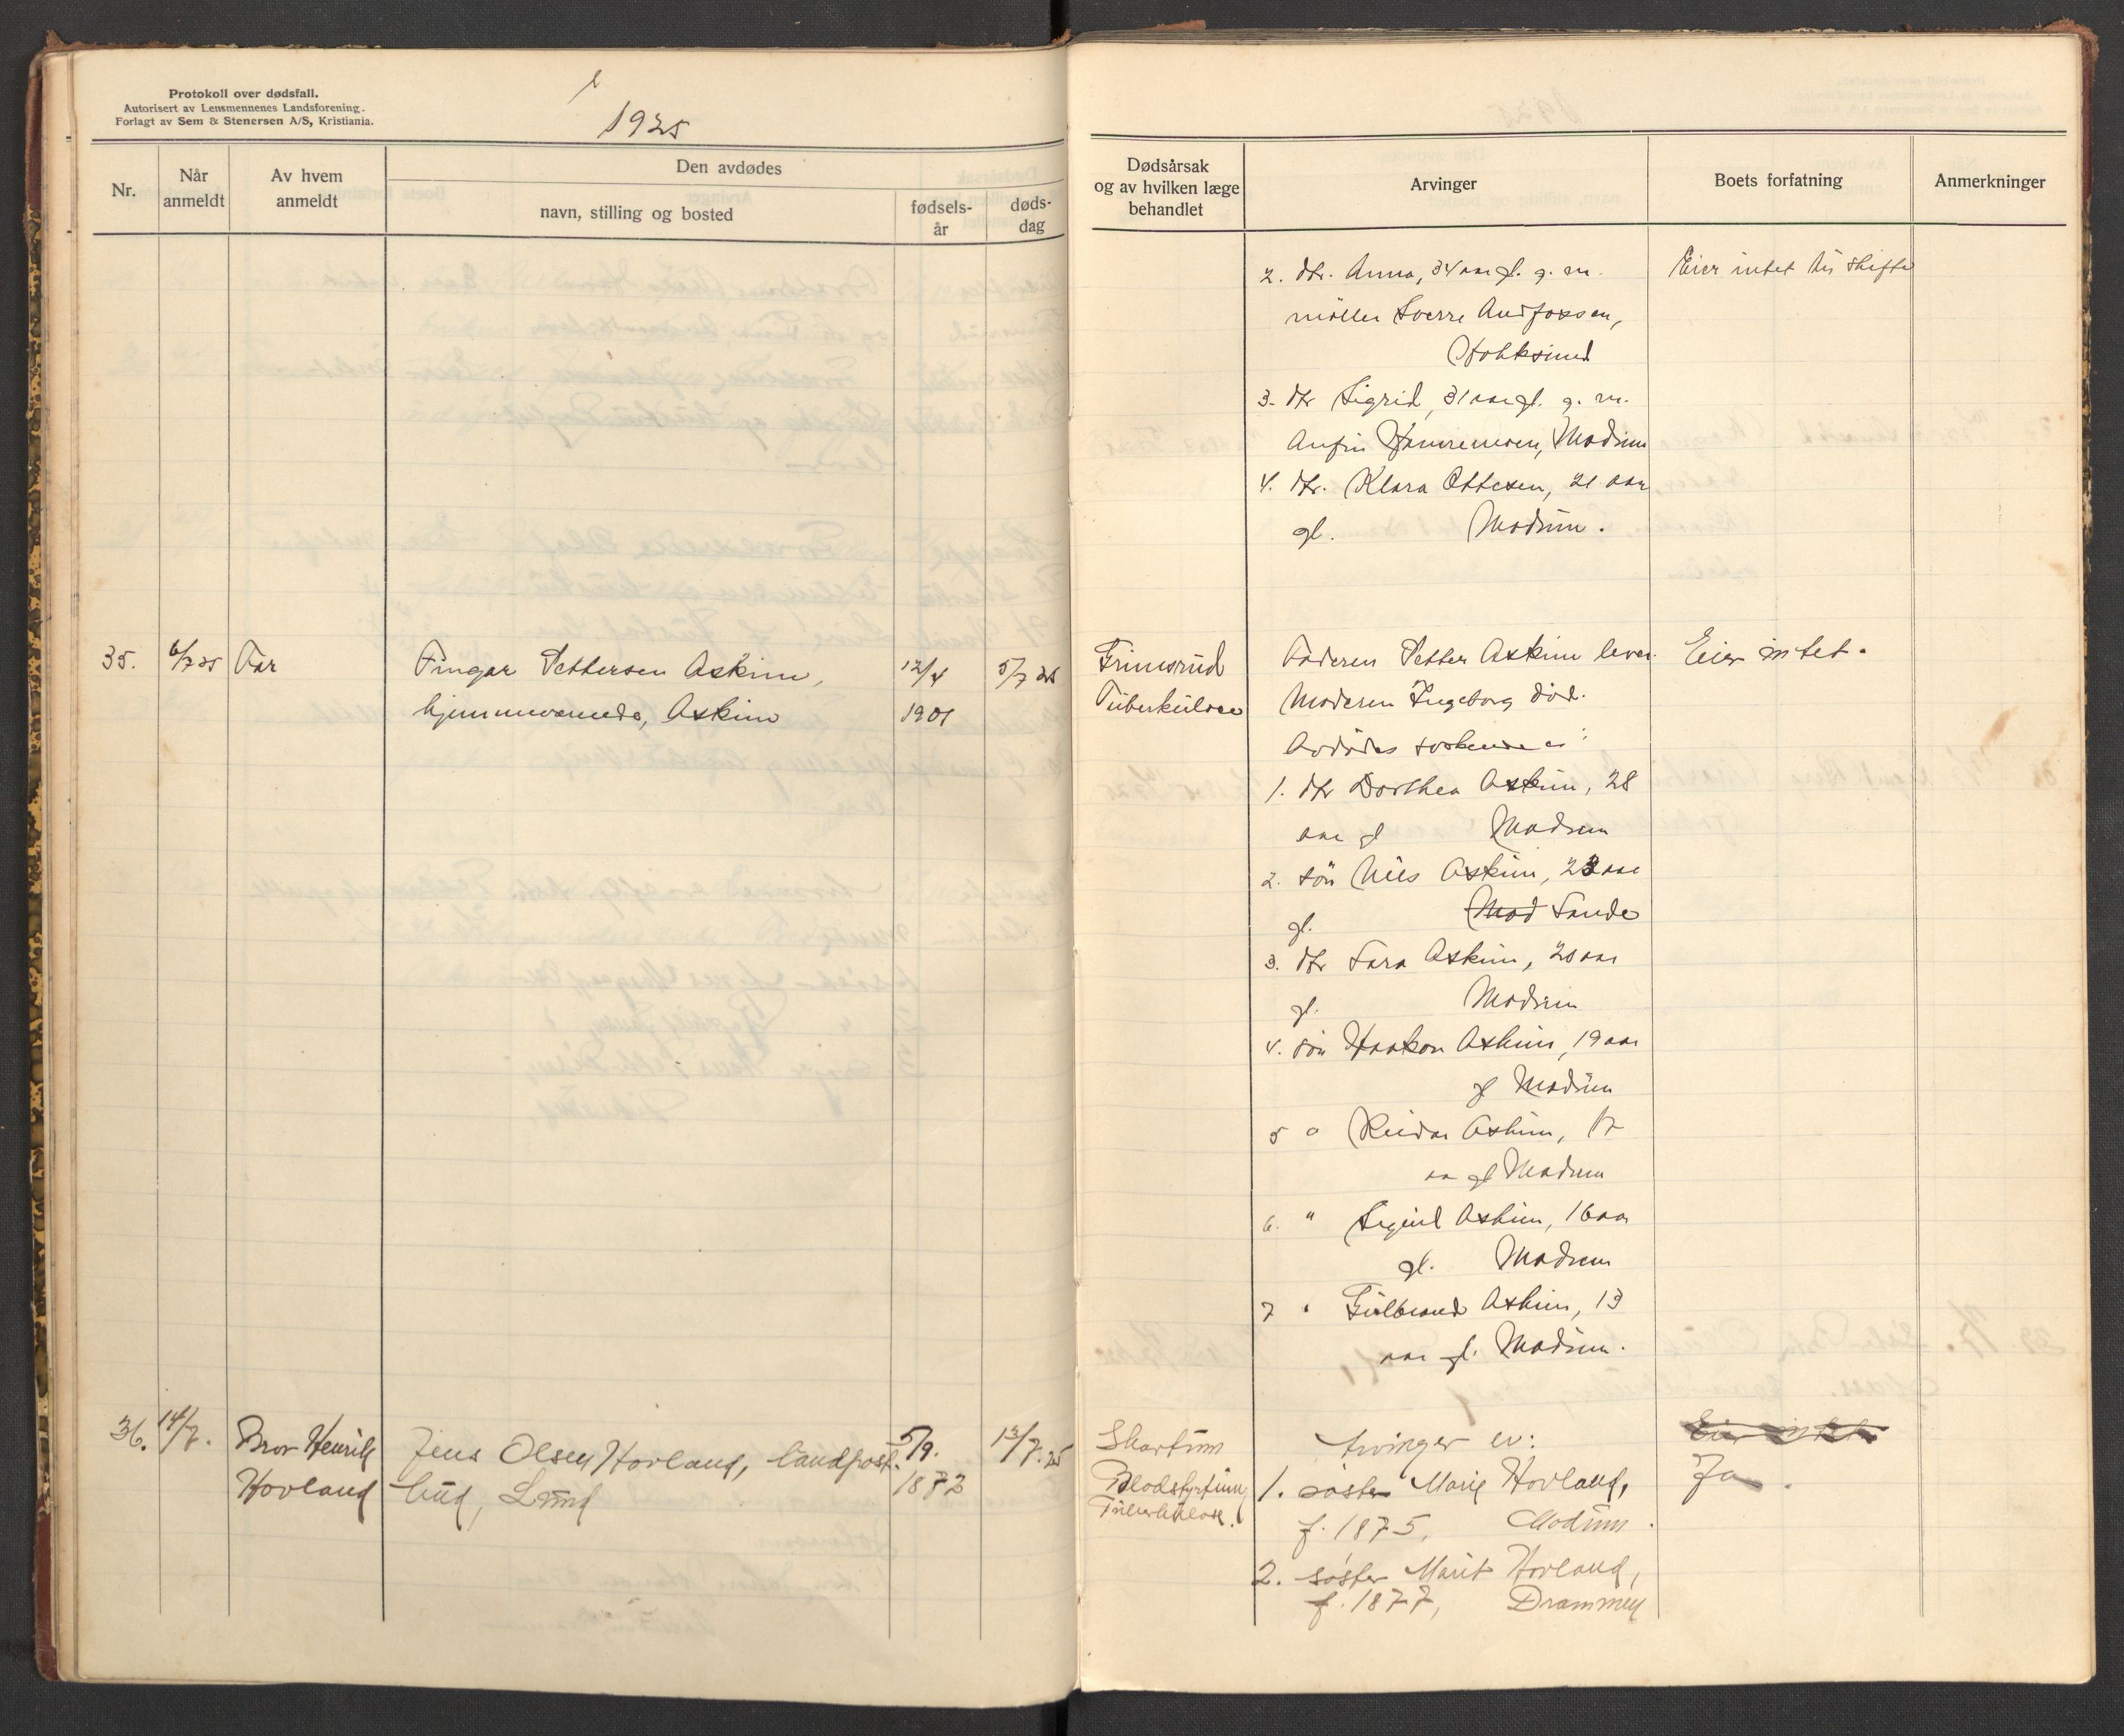 Protokoll over dødsfall.
Autorisert av Lensmennenes Landsforening.
Forlagt av Sem & Stenersen A/S, Kristiania.
1925
Nr.
Når anmeldt
Av hvem anmeldt
Den avdødes
navn, stilling og bosted
fødselsår
dødsdag
Dødsårsak
og av hvilken læge
behandlet
Arvinger
Boets forfatning
Anmerkninger
2. dtr. Anna, 34 aar gl. g. m.
møller Sverre
Hokksund
3. dtr Sigrid, 31 aar gl. g. m.
Modum
4. dtr. Klara Ottesen, 21 aar
gl. Modum.
Eier intet til skifte
35. 6/7 25 Far
Fingar Pettersen Askim,
hjemmeværende, Askim
12/4
1901
5/7 25
Grimsrud
Tüberkülose
Faderen Petter Askim lever.
Moderen Ingeborg död.
Avdödes söskende er:
1. dtr Dorthea Askim, 28
aar gl Modum
2. sön Nils Askim, 23 aar
gl. Mod Sande
3. dtr Sara Askim, 20 aar
gl. Modum
4. sön Haakon Askim, 19 aar
gl Modum
5 " Reidar Askim, 17
aar gl Modum
6. " Sigurd Askim, 16 aar
gl. Modum
7 " Gülbrand Askim, 13
aar gl. Modum.
Eier intet.
36. 14/7. Bror Henrik
Hovland
Jens Olsen Hovland, landpost-
bud, Lund
5/9.
1872
13/7. 25
Skartum
Blodstyrtning
Tüberkülose.
Arvinger er:
1. søster Marie Hovland,
f. 1875, Modum.
2. søster Marit Hovland,
f. 1877, Drammen
Eier intet
Ja.